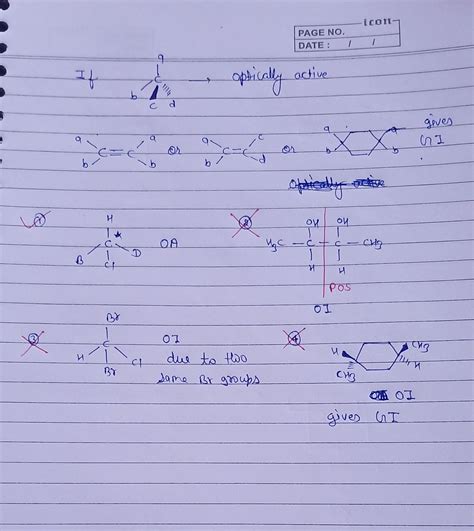 icon
PAGE NO.
DATE : / /
If a b C c d → optically active
a b C = C a b or a b C = C c d or a b a b gives GI
optically active
① H C * B D Cl OA
② H3C - C - C - CH3 OH OH H H
POS
OI
③ Br H C Cl Br OI
due to two
same Br groups
④ H CH3 CH3 H
OI
gives GI